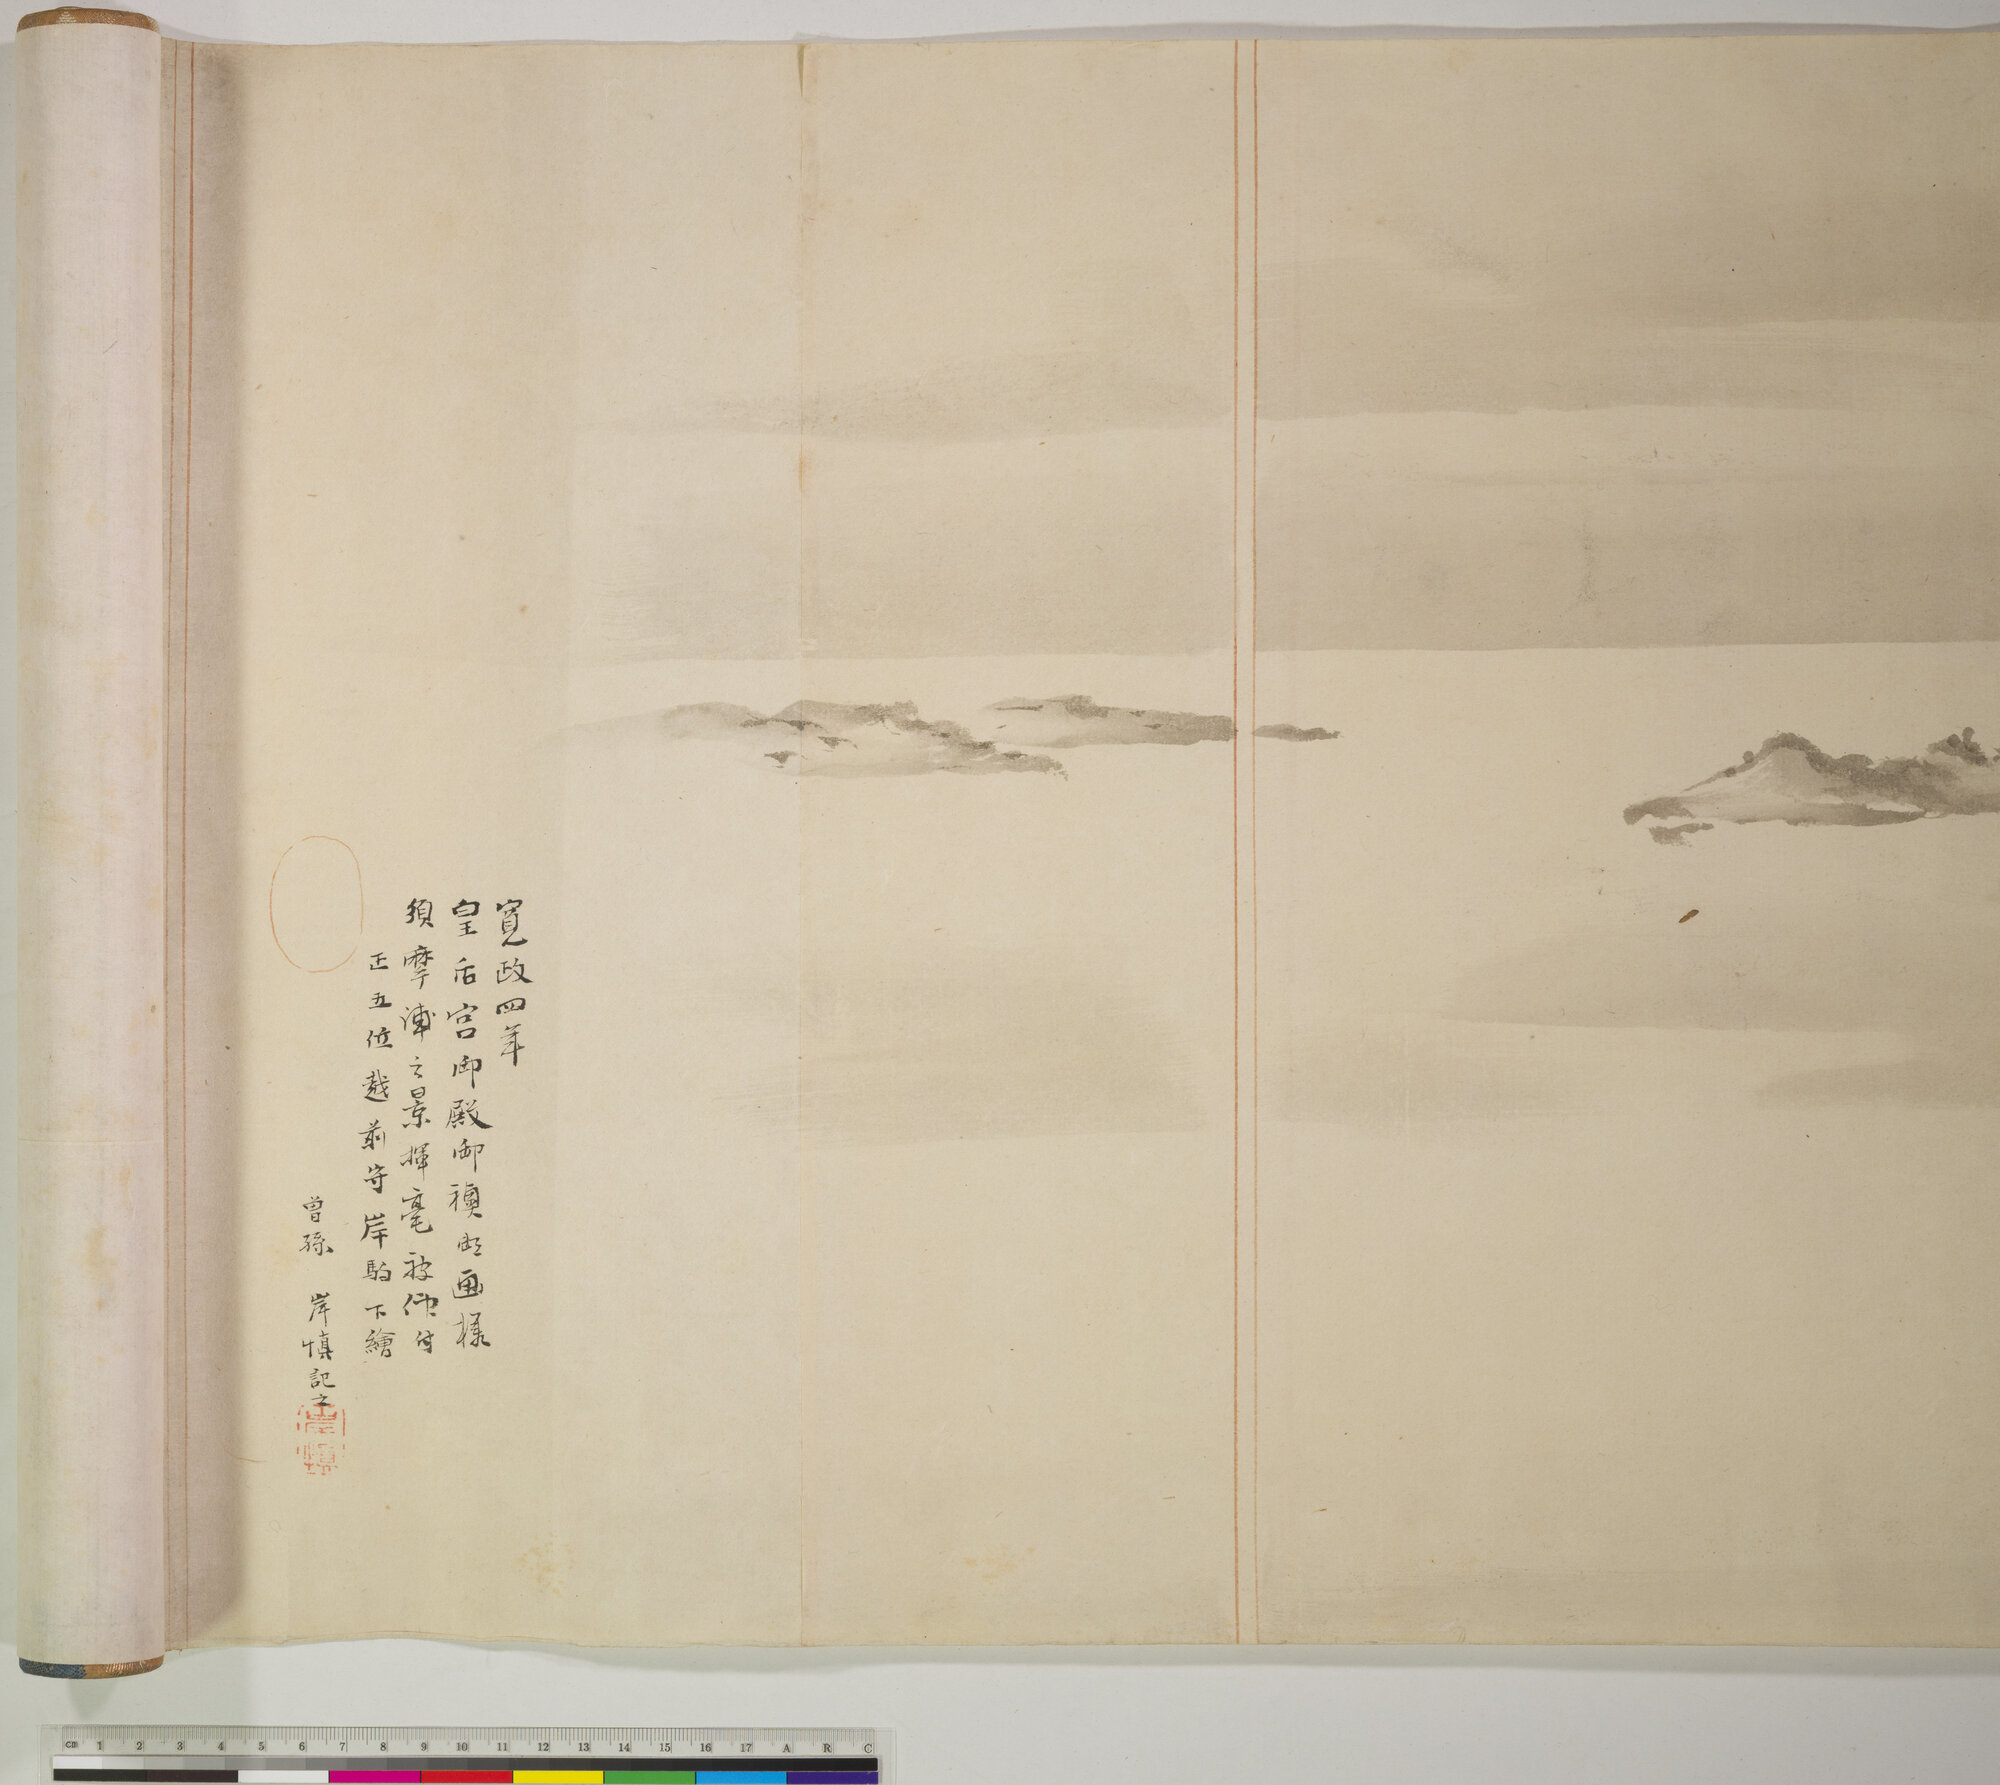 寛政四年
皇后宮御殿御襖画様
須摩浦之景揮毫被仰付
正五位越前守岸駒下繪
曽孫 岸慎記之
CD 1 2 3 4 5 6 7 8 9 10 11 12 13 14 15 16 17 A R C